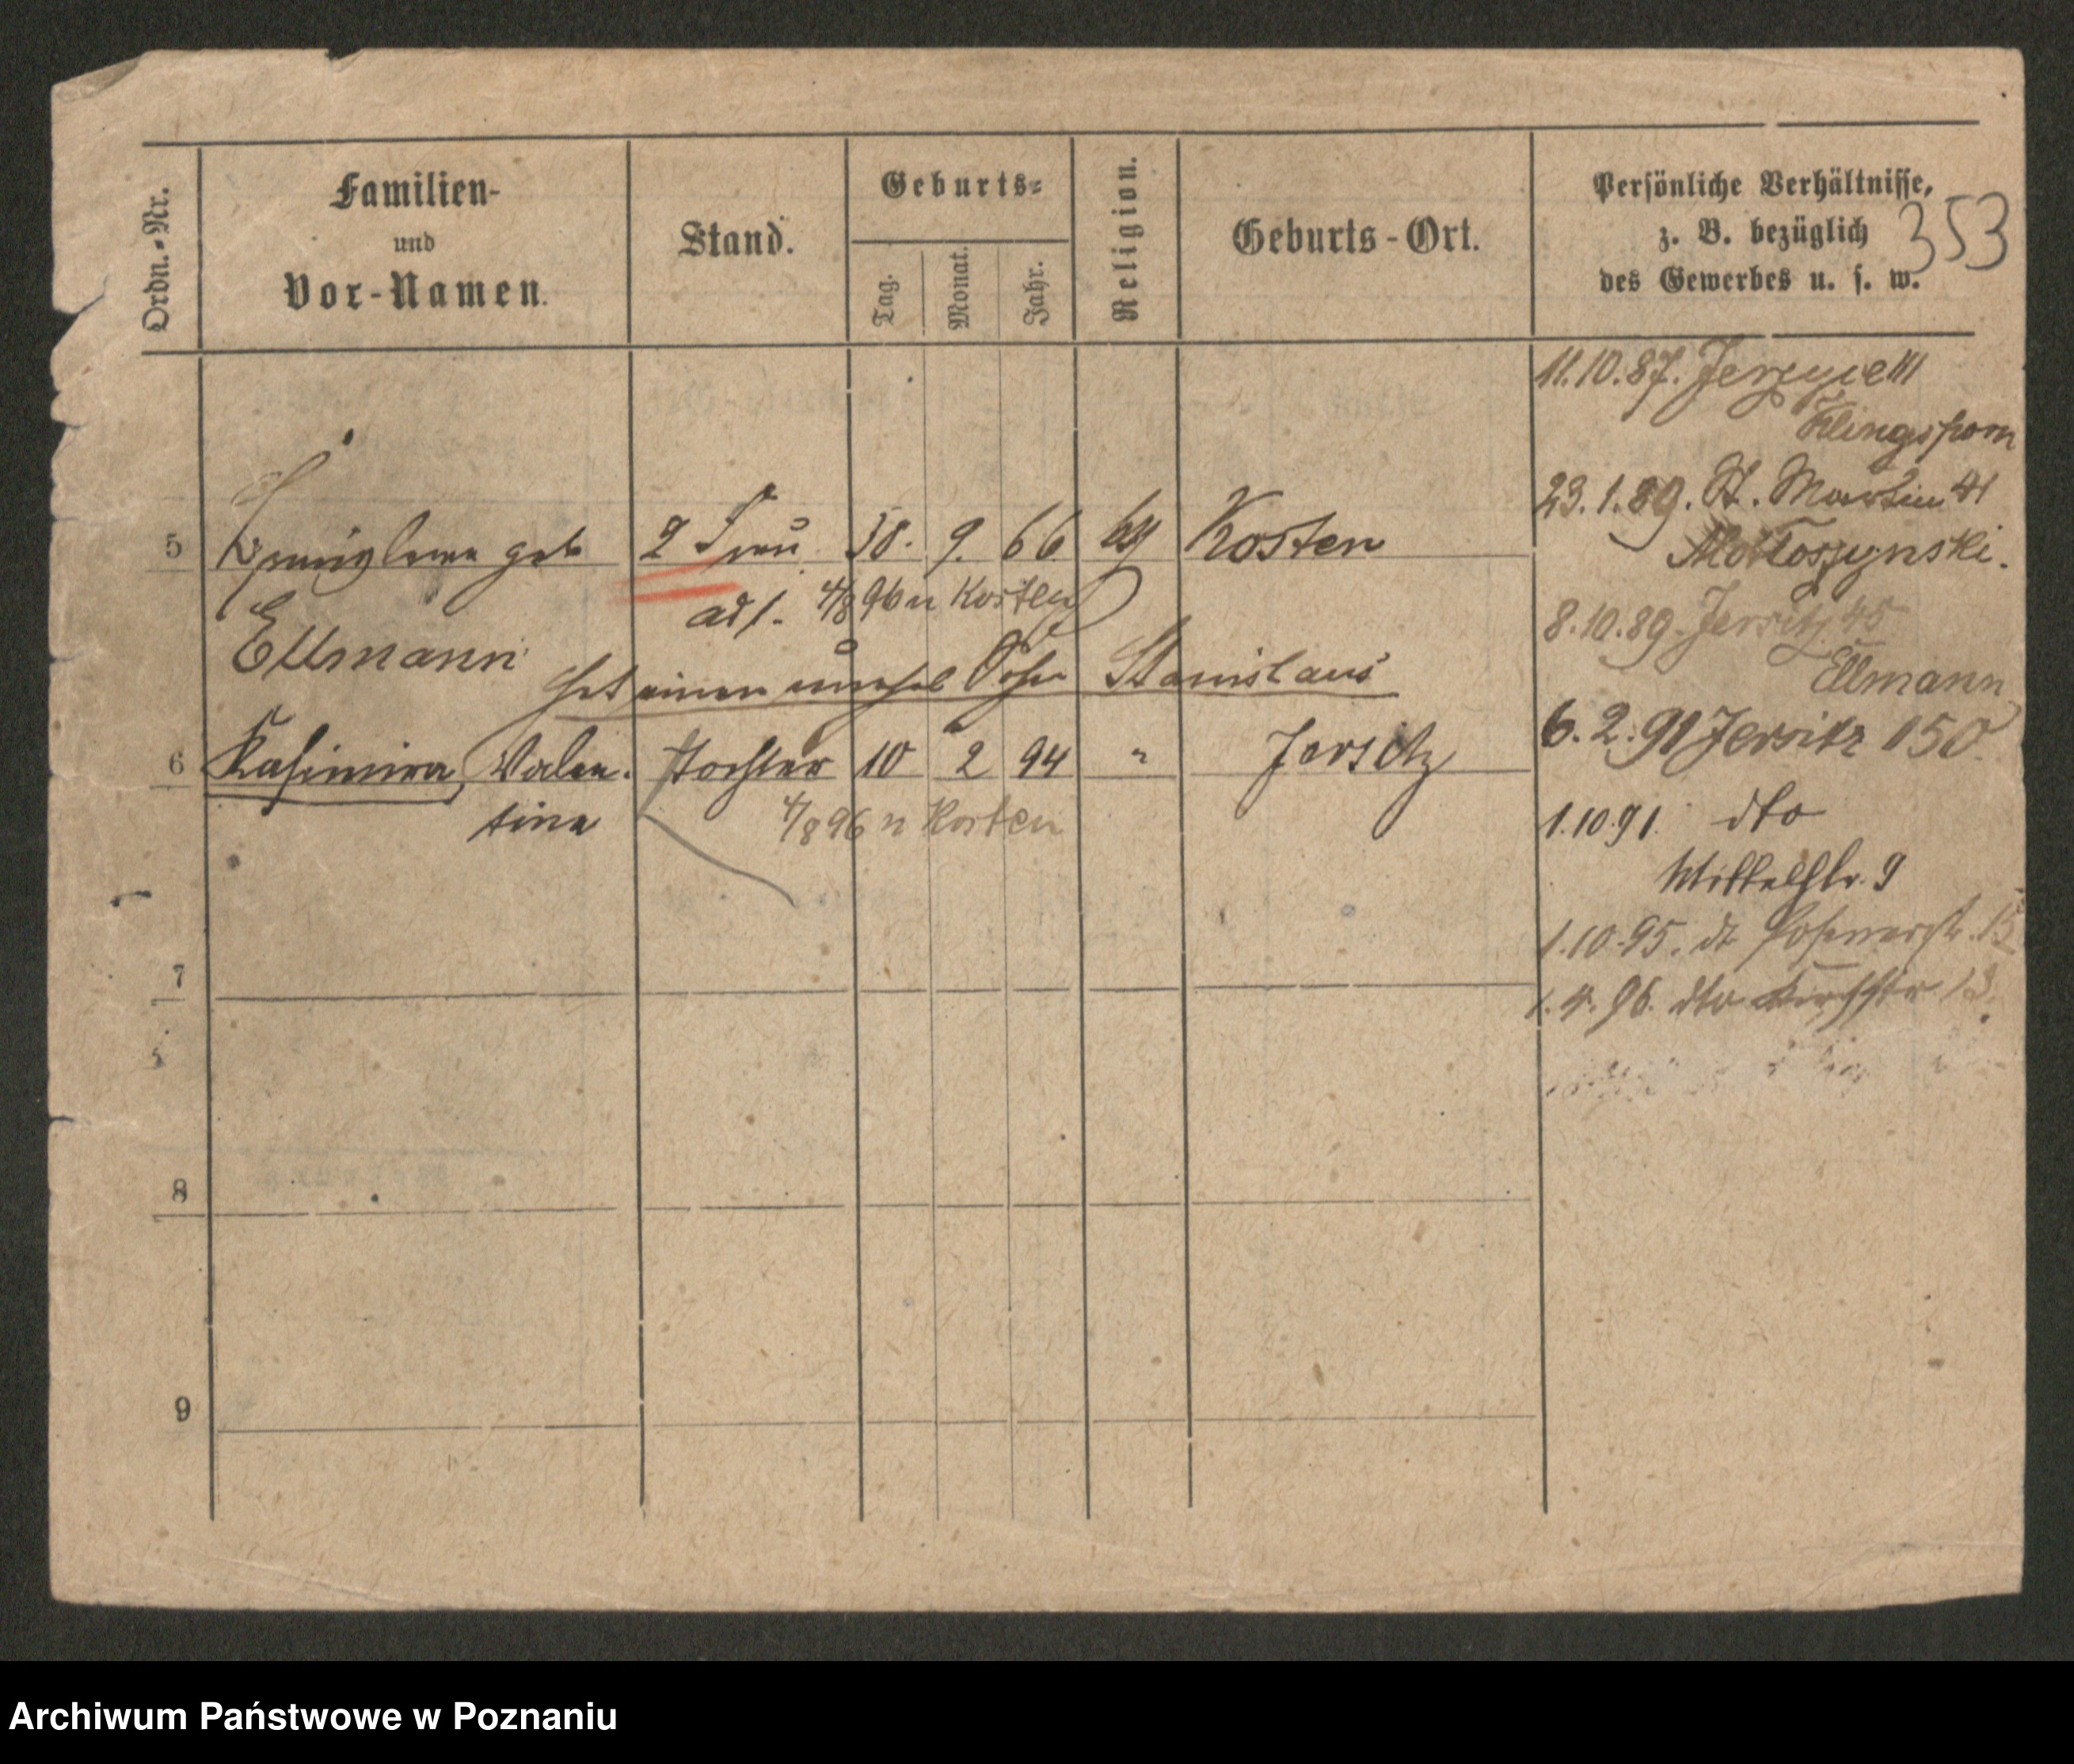 353
Ordn.-Nr.
Familien-
und
Vor-Namen.
Stand.
Geburts-
Tag.
Monat.
Jahr.
Religion.
Geburts-Ort.
Persönliche Verhältnisse,
z. B. bezüglich
des Gewerbes u. s. w.
11.10.87. Jerzyce 111
Klingsporn
23.1.89. St. Martin 41
8.10.89. Jersitz 45
Ellmann
6.2.91 Jersitz 150
1.10.91. dto
Mittelstr. 9
1.10.95. dt Posenerstr. 15
1.4.96. dto Kirchstr 13.
5 geb 2 Frau 9. 66 Kosten
ad 1. 4/8 96 n Kosten
Ellmann
hat einen unehel Sohn Stanislaus
6 Kasimira, Valen- Tochter 10 2 94 " Jersitz
tina 4/8 96 n Kosten
7
8
9
Archiwum Państwowe w Poznaniu